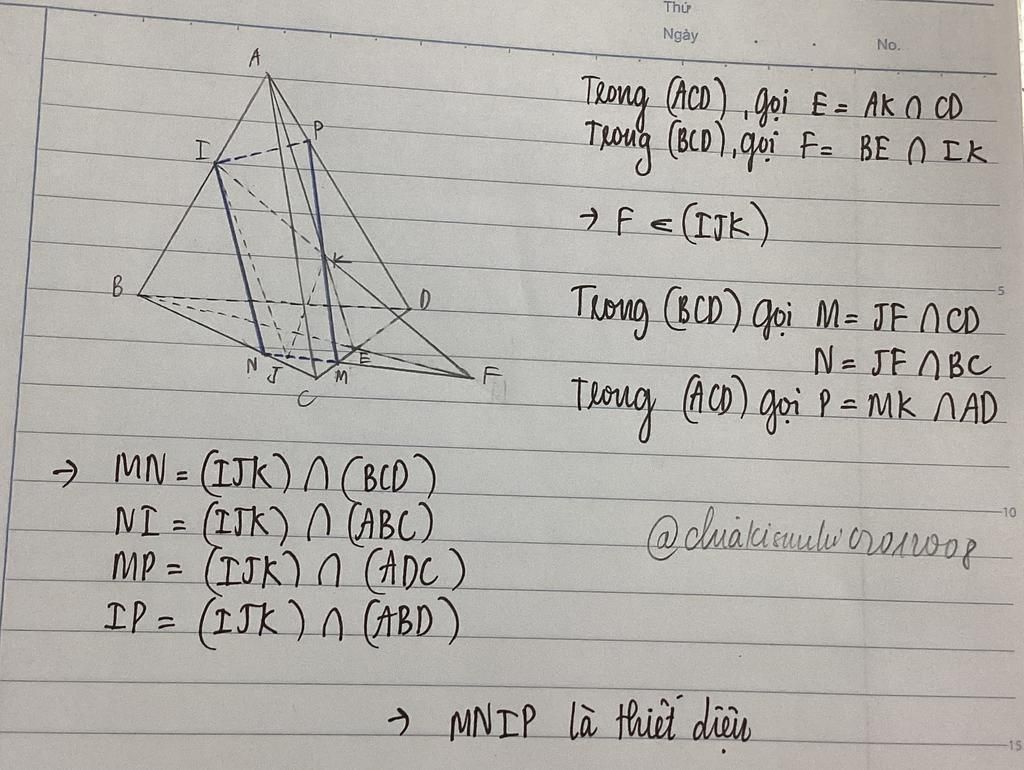 Thứ
Ngày . . No.
Trong (ACD), gọi E = AK ∩ CD
Trong (BCD), gọi F = BE ∩ IK
→ F ∈ (IJK)
Trong (BCD) gọi M = JF ∩ CD
N = JF ∩ BC
Trong (ACD) gọi P = MK ∩ AD
A
P
I
K
B
D
N
J
C
M
E
F
5
→ MN = (IJK) ∩ (BCD)
NI = (IJK) ∩ (ABC)
MP = (IJK) ∩ (ADC)
IP = (IJK) ∩ (ABD)
10
→ MNIP là thiết diện
15